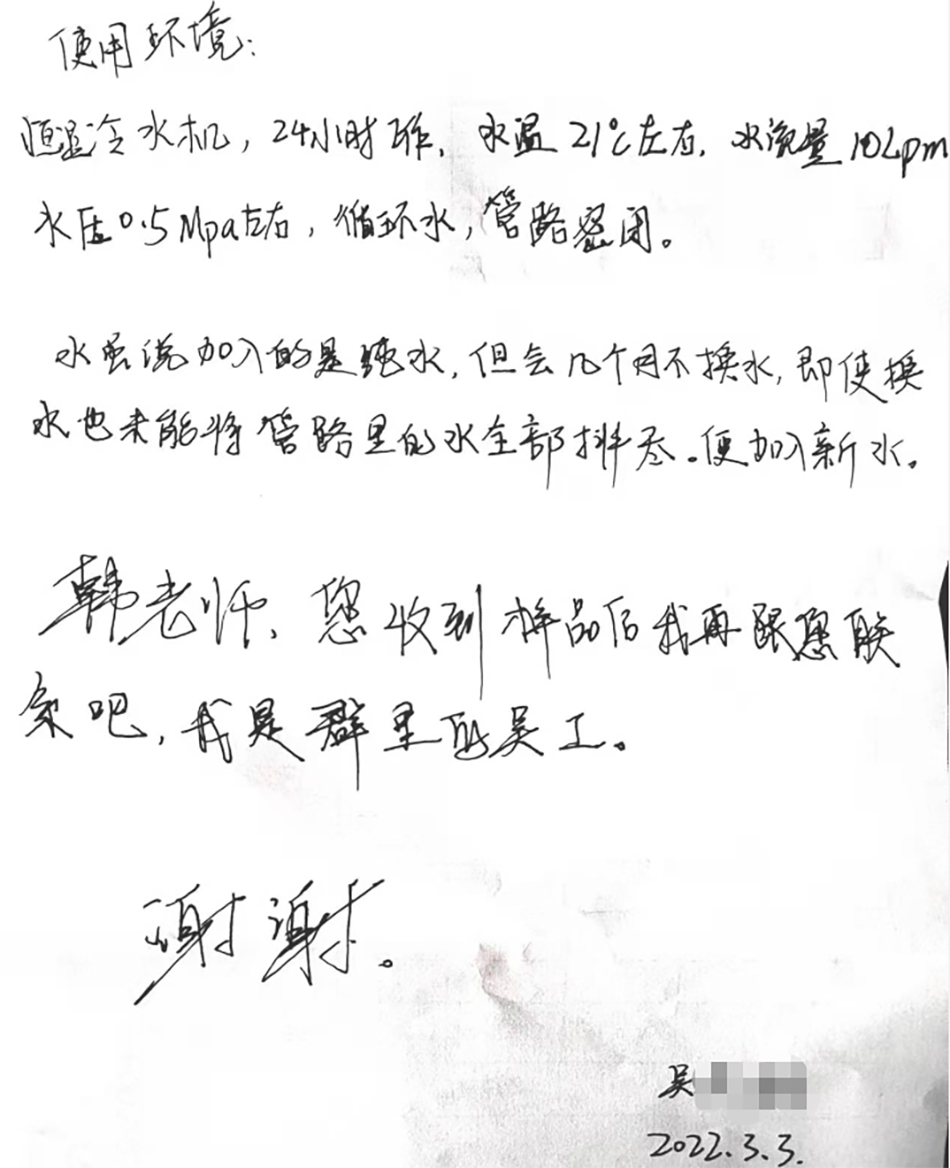 使用环境:
恒温冷水机,24小时工作,水温21℃左右,水流量10Lpm
水压0.5Mpa左右,循环水,管路密闭。
水虽说加入的是纯水,但会几个月不换水,即使换
水也未能将管路里的水全部排尽。便加入新水。
韩老师、您收到样品后我再跟您联
系吧,我是群里的吴工。
谢谢。
吴
2022.3.3.